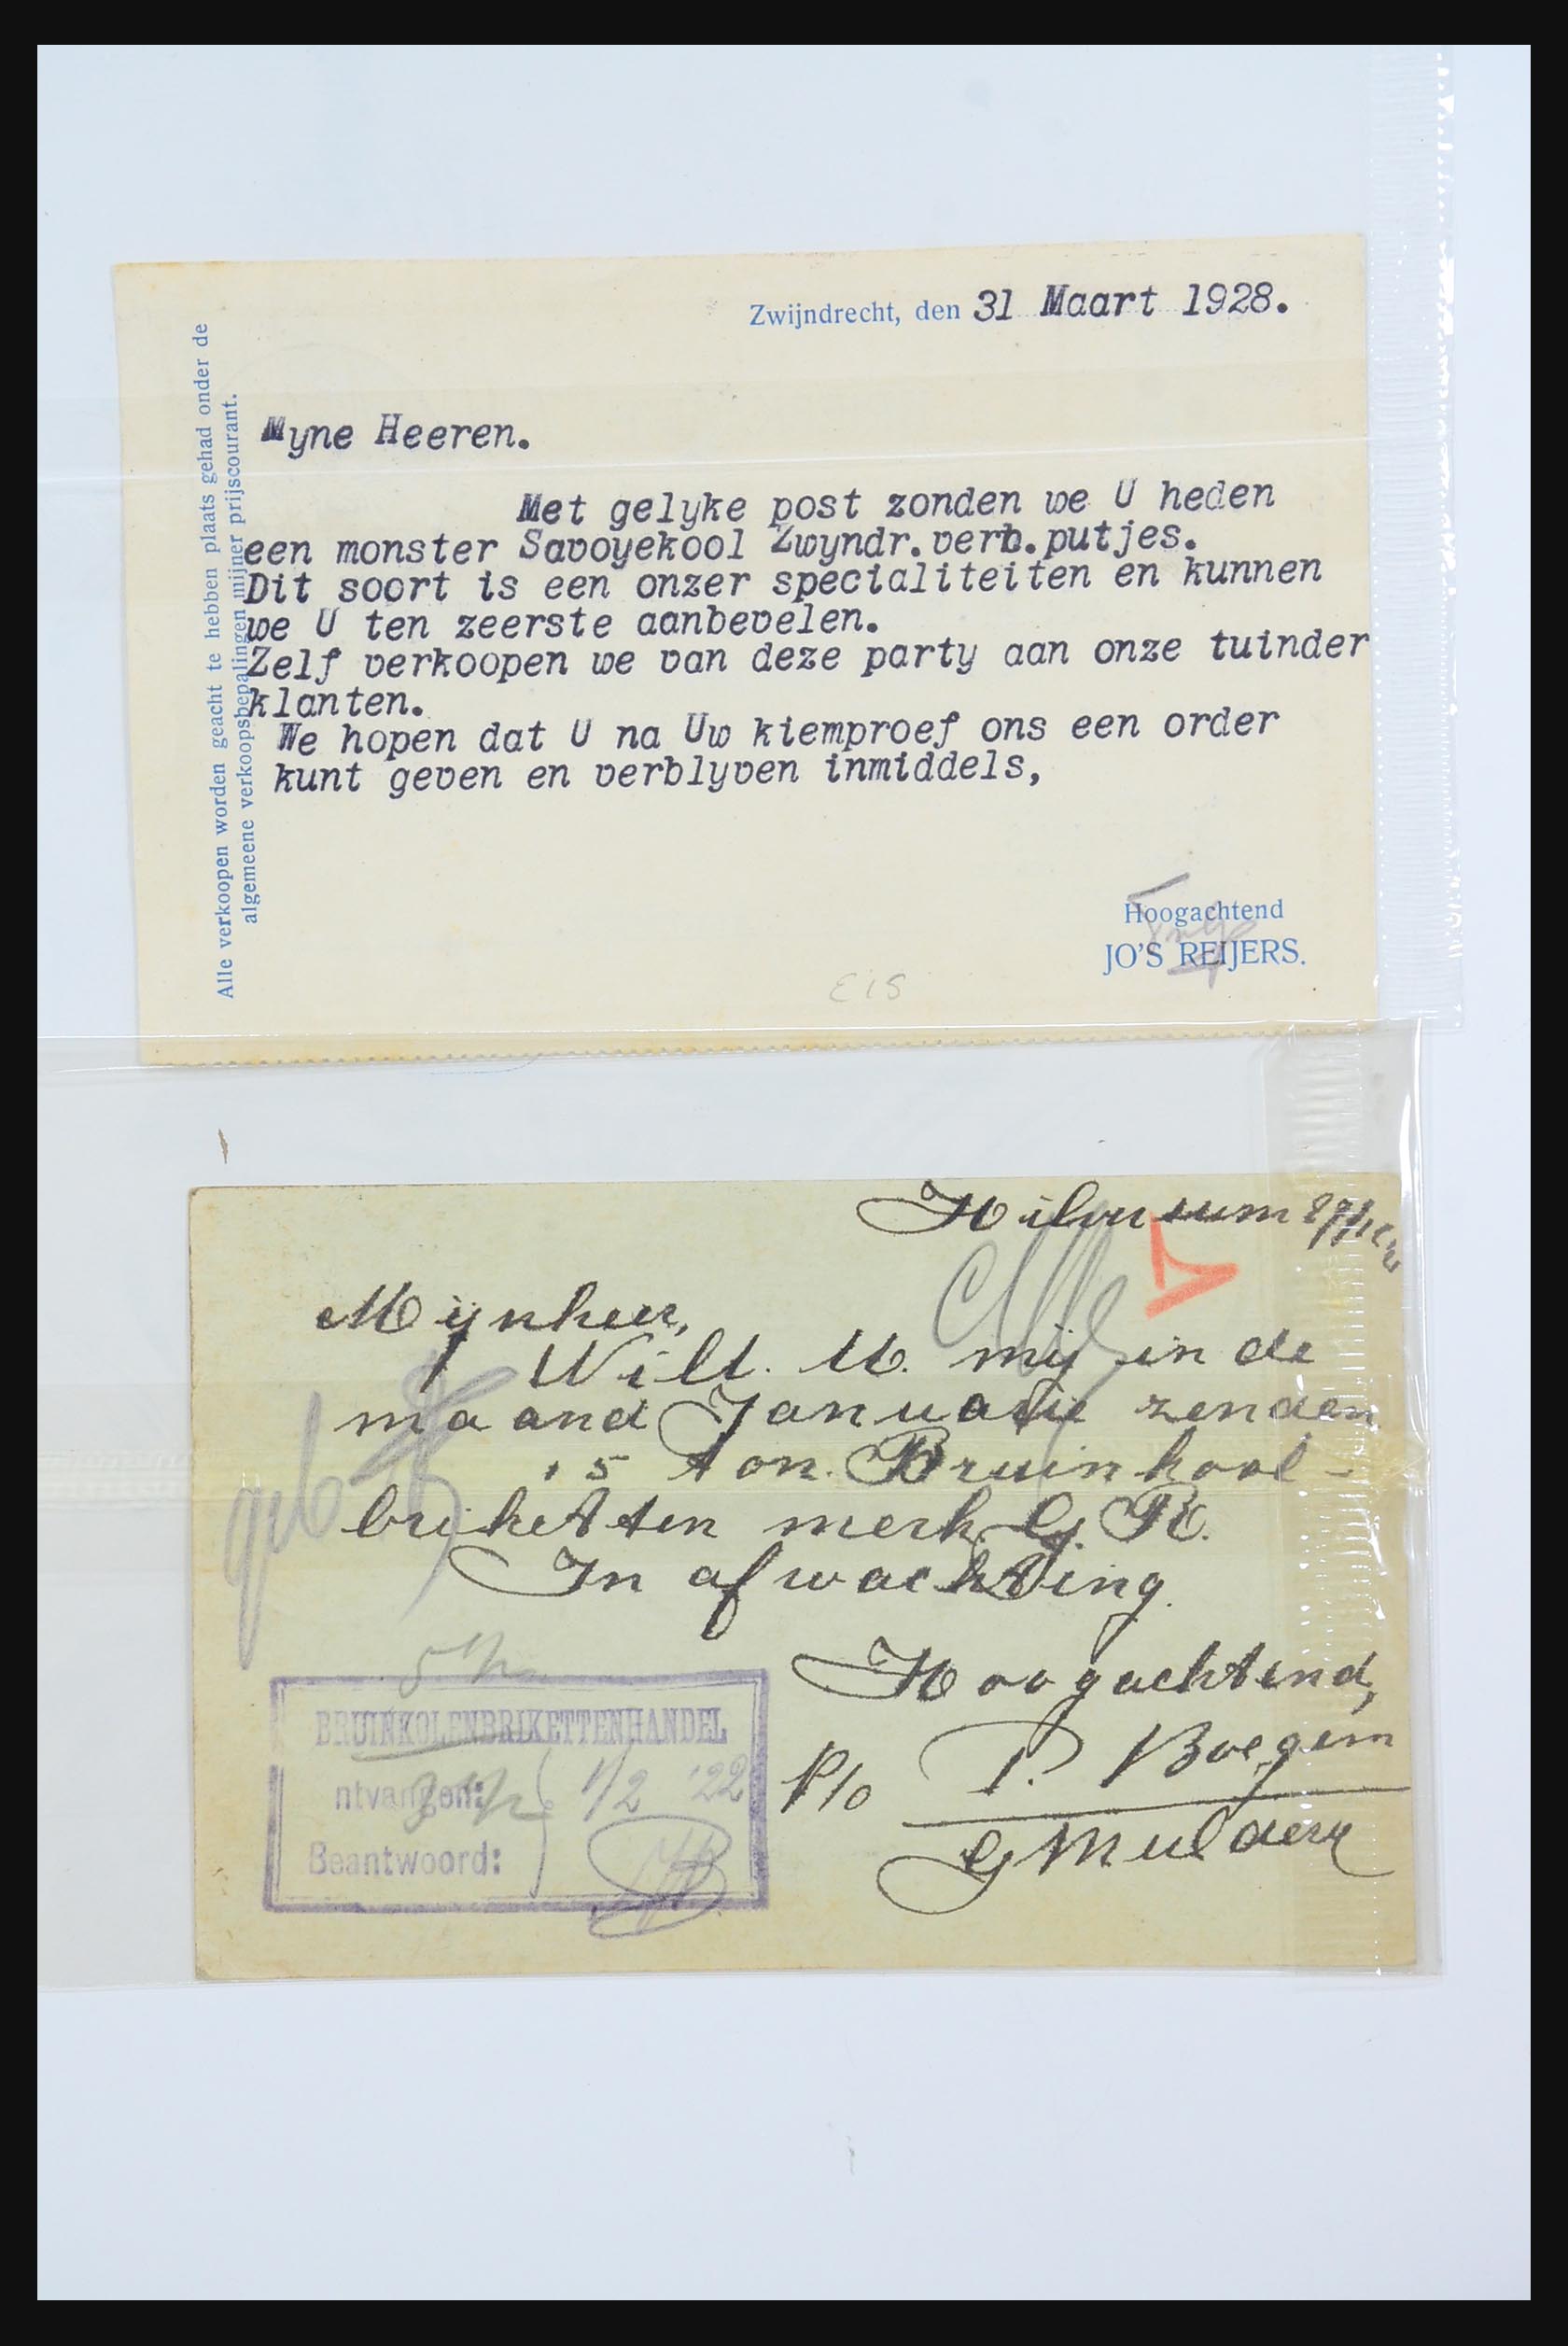 Zwijndrecht, den 31 Maart 1928.
Alle verkoopen worden geacht te hebben plaats gehad onder de
algemeene verkoopsbepalingen mijner prijscourant.
Myne Heeren.
Met gelyke post zonden we U heden
een monster Savoyekool Zwyndr.verb.putjes.
Dit soort is een onzer specialiteiten en kunnen
we U ten zeerste aanbevelen.
Zelf verkoopen we van deze party aan onze tuinder
klanten.
We hopen dat U na Uw kiemproef ons een order
kunt geven en verblyven inmiddels,
Hoogachtend
JO'S REIJERS.
E15
Hilversum
Mijnheer,
Wilt U mij in de
maand Januarie zenden
15 ton. Bruinkool-
briketten merk G. R.
In afwachting.
Hoogachtend,
P/o P. Boegem
G Mulder
BRUINKOLENBRIKETTENHANDEL
ntvangen: 1/2 '22
Beantwoord: